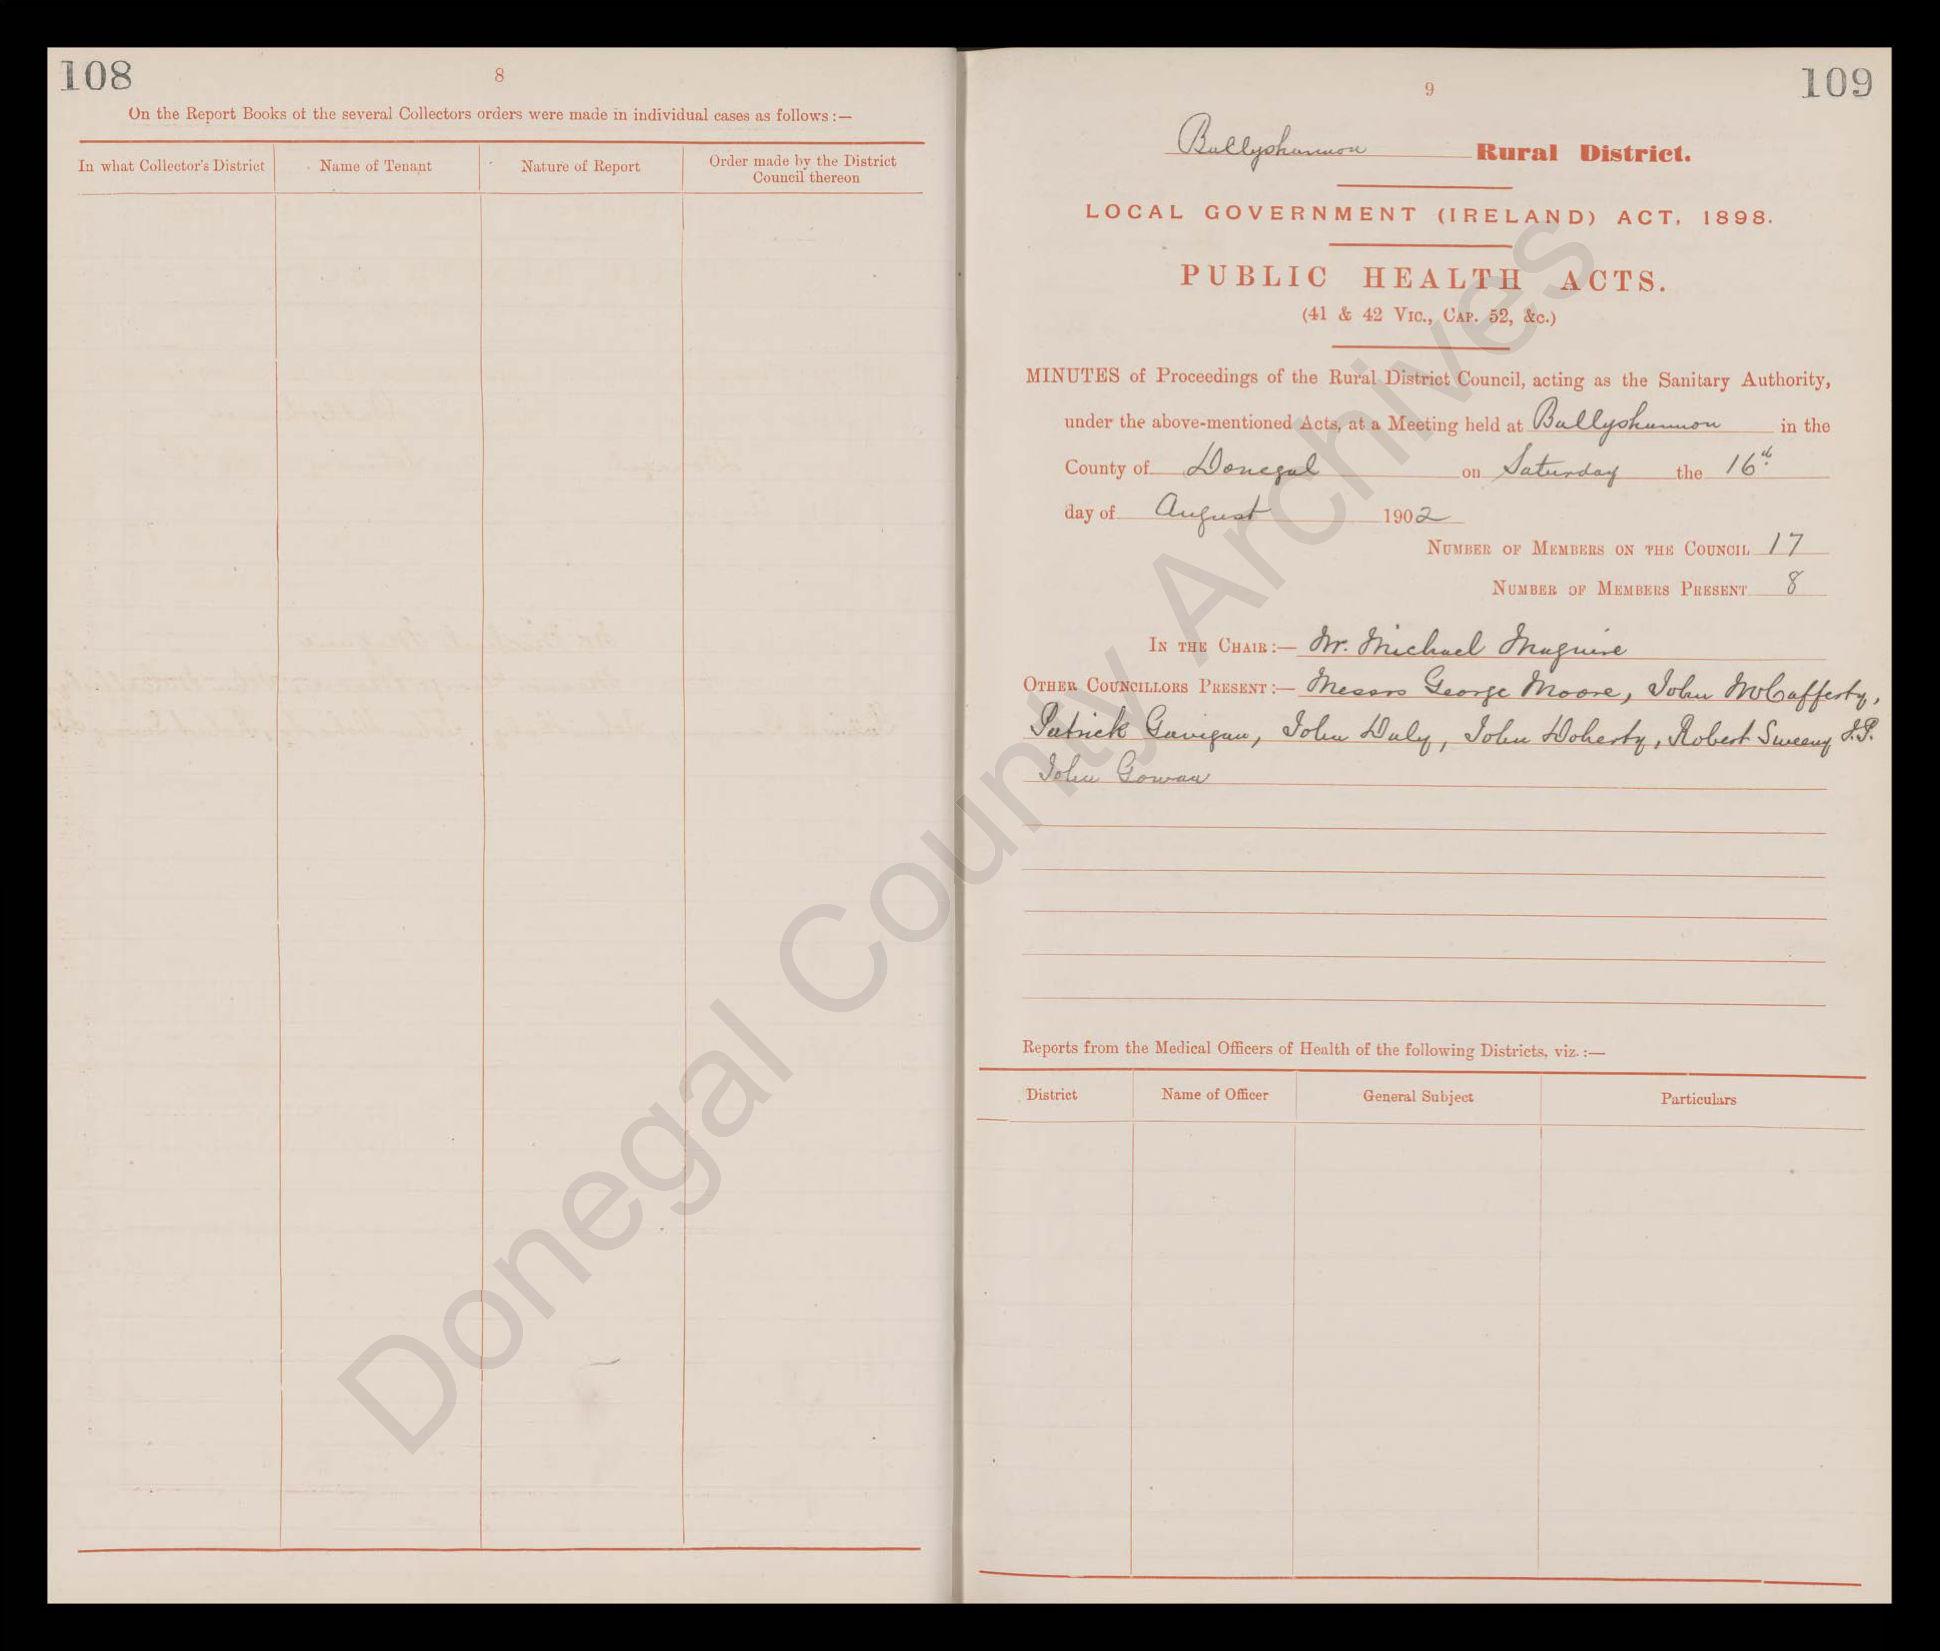 108
8
On the Report Books of the several Collectors orders were made in individual cases as follows :—
In what Collector's District
Name of Tenant
Nature of Report
Order made by the District
Council thereon
109
9
Ballyshannon Rural District.
LOCAL GOVERNMENT (IRELAND) ACT, 1898.
PUBLIC HEALTH ACTS.
(41 & 42 Vic., Cap. 52, &c.)
MINUTES of Proceedings of the Rural District Council, acting as the Sanitary Authority,
under the above-mentioned Acts, at a Meeting held at Ballyshannon in the
County of Donegal on Saturday the 16th
day of August 1902
Number of Members on the Council 17
Number of Members Present 8
In the Chair :— Mr. Michael Maguire
Other Councillors Present :— Messrs George Moore, John McCafferty,
Patrick Gavigan, John Daly, John Doherty, Robert Sweeny J.P.
John Gowan
Reports from the Medical Officers of Health of the following Districts, viz. :—
District
Name of Officer
General Subject
Particulars
Donegal County Archives